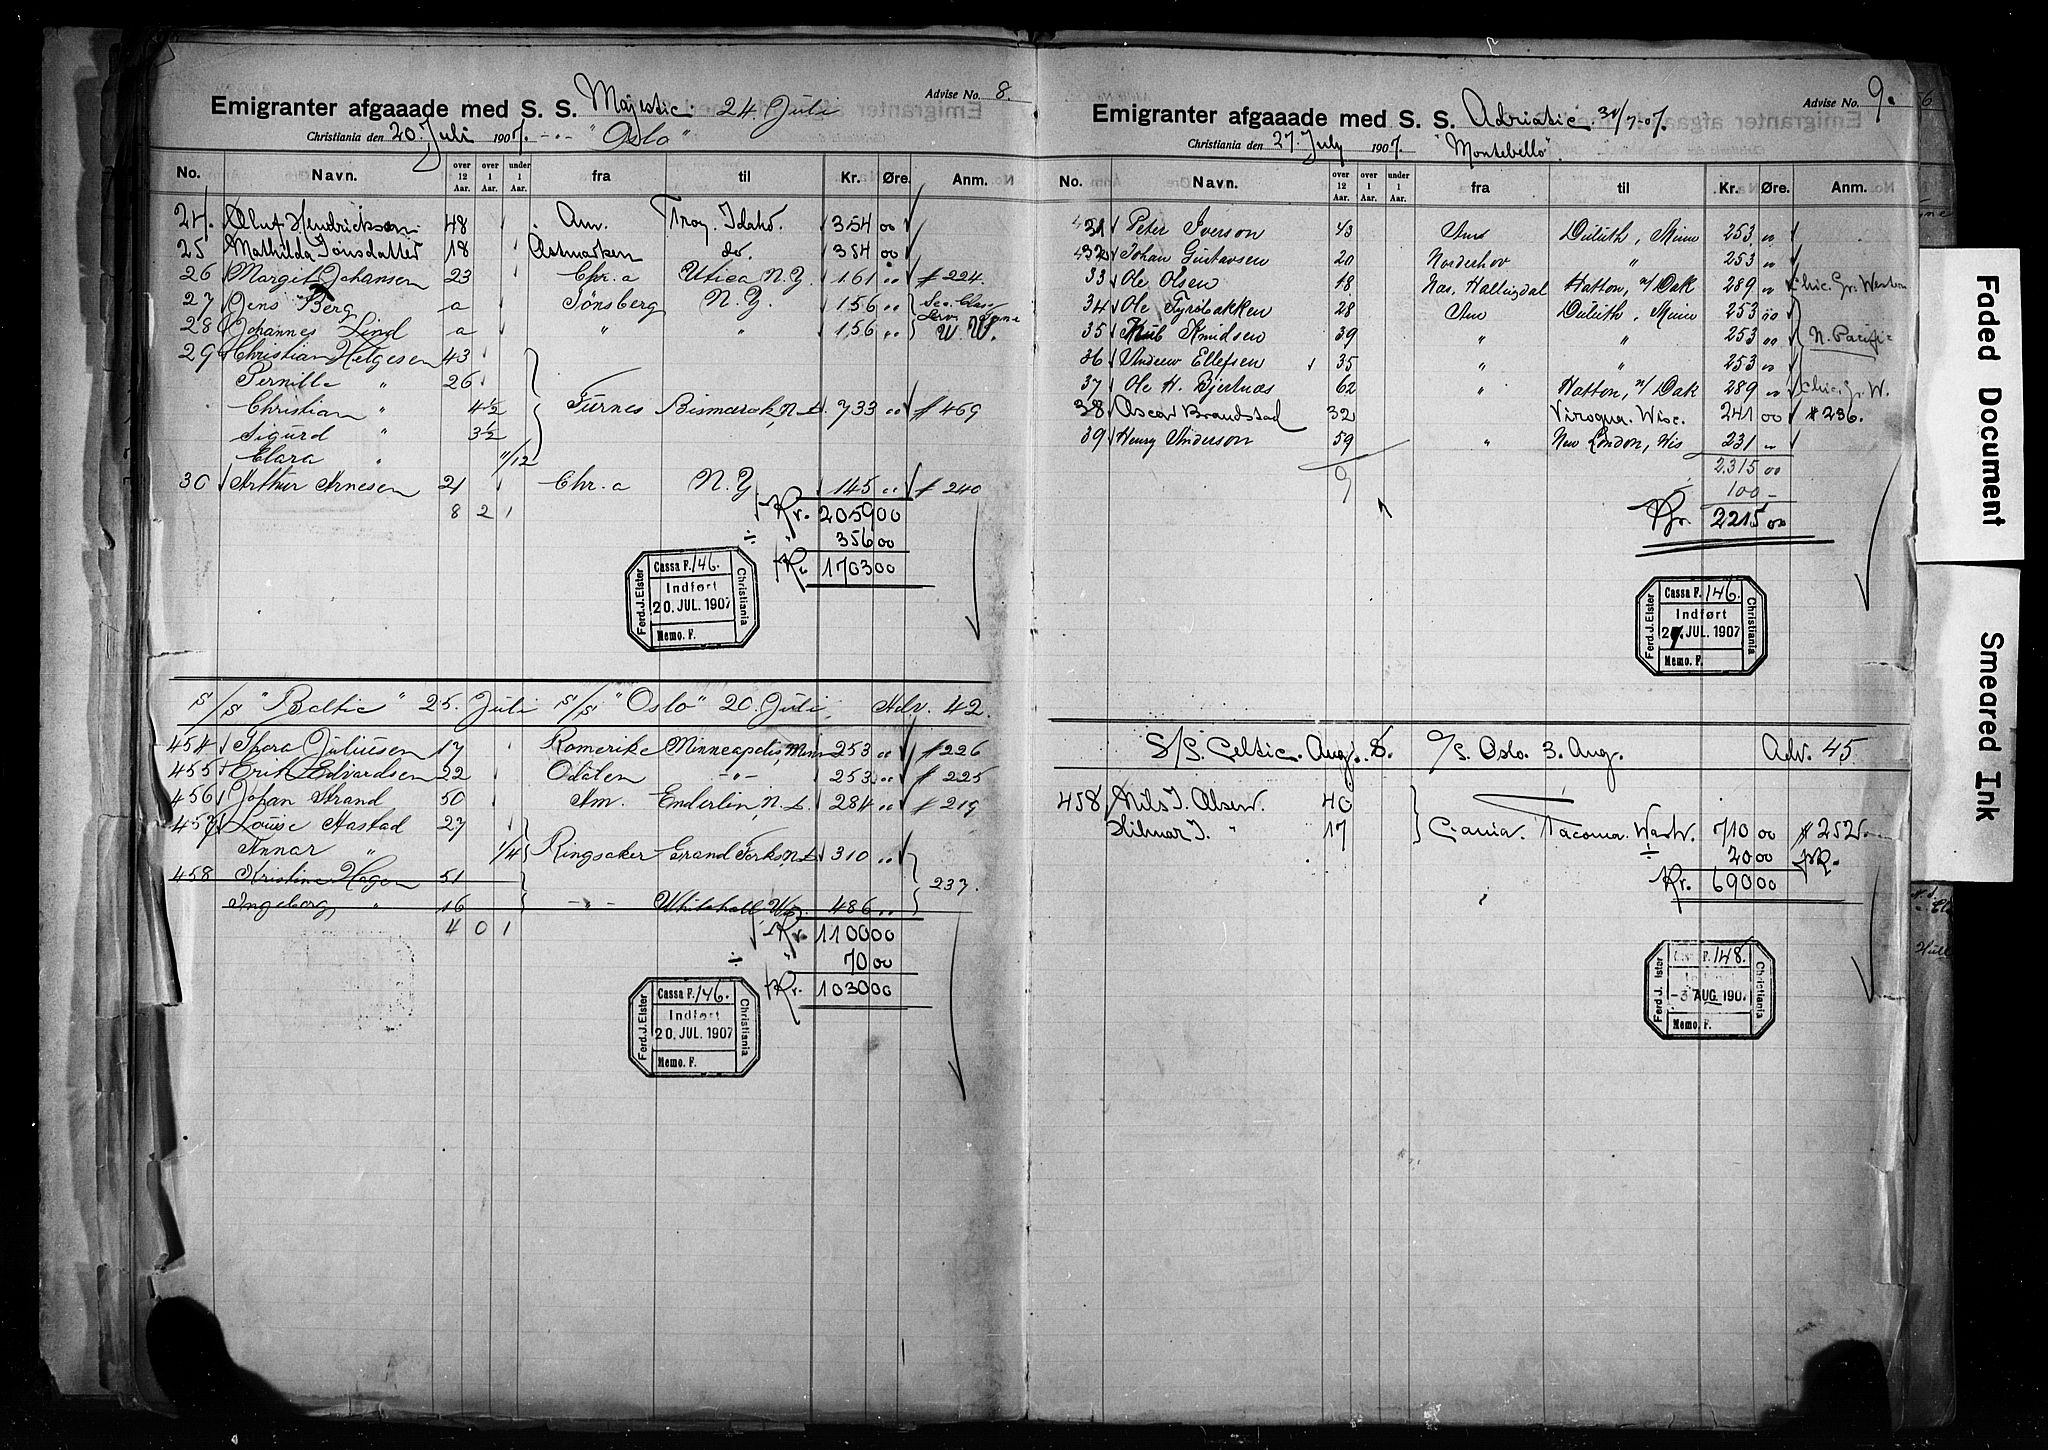 Advise No. 8.
Emigranter afgaaade med S. S. Majestic 24 Juli
Christiania den 20. Juli 1907. -"- "Oslo"
No. Navn. over 12 Aar. over 1 Aar. under 1 Aar. fra til Kr. Øre. Anm.
24. Oluf Hendricksen 48 Am. Troy, Idaho. 354 00
25 Mathilda Jonsdatter 18 Astmarken do. 354 00
26 Margit Johansen 23 Chr.a Utica N.Y. 161 " # 224.
27 Jens Berg a Tönsberg N.Y. 156 "
28 Johannes Lind a " " 156 " W.W.
29 Christian Helgesen 43
Pernille " 26
Christian " 4½ Furnes Bismarck, N.D. 733 " # 469
Sigurd " 3½
Clara " 11/12
30 Arthur Arnesen 21 Chr.a N.Y 145 " # 240
8 2 1 Kr. 2059 00
÷ " 356 00
Kr. 1703 00
Ferd. J. Elster Christiania
Cassa F. 146.
Indført
20. JUL. 1907
Memo. F.
S/S "Baltic" 25. Juli S/S "Oslo" 20. Juli Adv. 42.
454 Thora Juliusen 17 Romerike Minneapolis, Minn 253 " # 226
455 Erik Edvardsen 22 Odalen -"- 253 " # 225
456 Johan Strand 50 Am. Enderlin, N.D. 284 " # 219
457 Louise Aastad 27
Annar " 1/4 Ringsaker Grand Forks, N.D. 310 "
458 Kristine Hagen 51 237.
Ingeborg " 16 -"- Whitehall Wis. 486 "
4 0 1 Kr. 1100 00
÷ " 70 00
Kr. 1030 00
Ferd. J. Elster Christiania
Cassa F. 146.
Indført
20. JUL. 1907
Memo. F.
Advise No. 9.
Emigranter afgaaade med S. S. Adriatic 31/7-07.
Christiania den 27. July 1907. "Montebello".
No. Navn. over 12 Aar. over 1 Aar. under 1 Aar. fra til Kr. Øre. Anm.
431 Peter Iverson 43 Am Duluth, Minn 253 "
432 Johan Gustavsen 20 Norderhov " 253 "
33 Ole Olsen 18 Nas, Hallingdal Hatton, N/Dak 289 " Chic. Gr. Western
34 Ole Fyribakken 28 Am Duluth, Minn 253 00
35 Knudsen 39 " " 253 00 N. Pacific
36 Andrew Ellefsen 35 " 253 "
37 Ole H. Bjertnæs 62 " Hatton, N/Dak 289 " Chic. Gr. W.
38 Oscar Brandstad 32 Viroqua. Wisc. 241 00 # 236.
39 Henry Anderson 59 " New London, Wis 231 "
9 2315 00
100 -
Kr. 2215 00
Ferd. J. Elster Christiania
Cassa F. 146.
Indført
27. JUL 1907
Memo. F.
S/S. Celtic. Aug. 8. S/S. Oslo. 3. Aug. Adv. 45
458 Nils J. Olsen. 40
Hilmar J. " 17 C'ania. Tacoma. Wash. 710 00 # 252
÷ 20 00
Kr. 690 00
Ferd. J. Elster Christiania
F. 148.
-3 AUG. 1907
Memo. F.
Faded Document
Smeared Ink